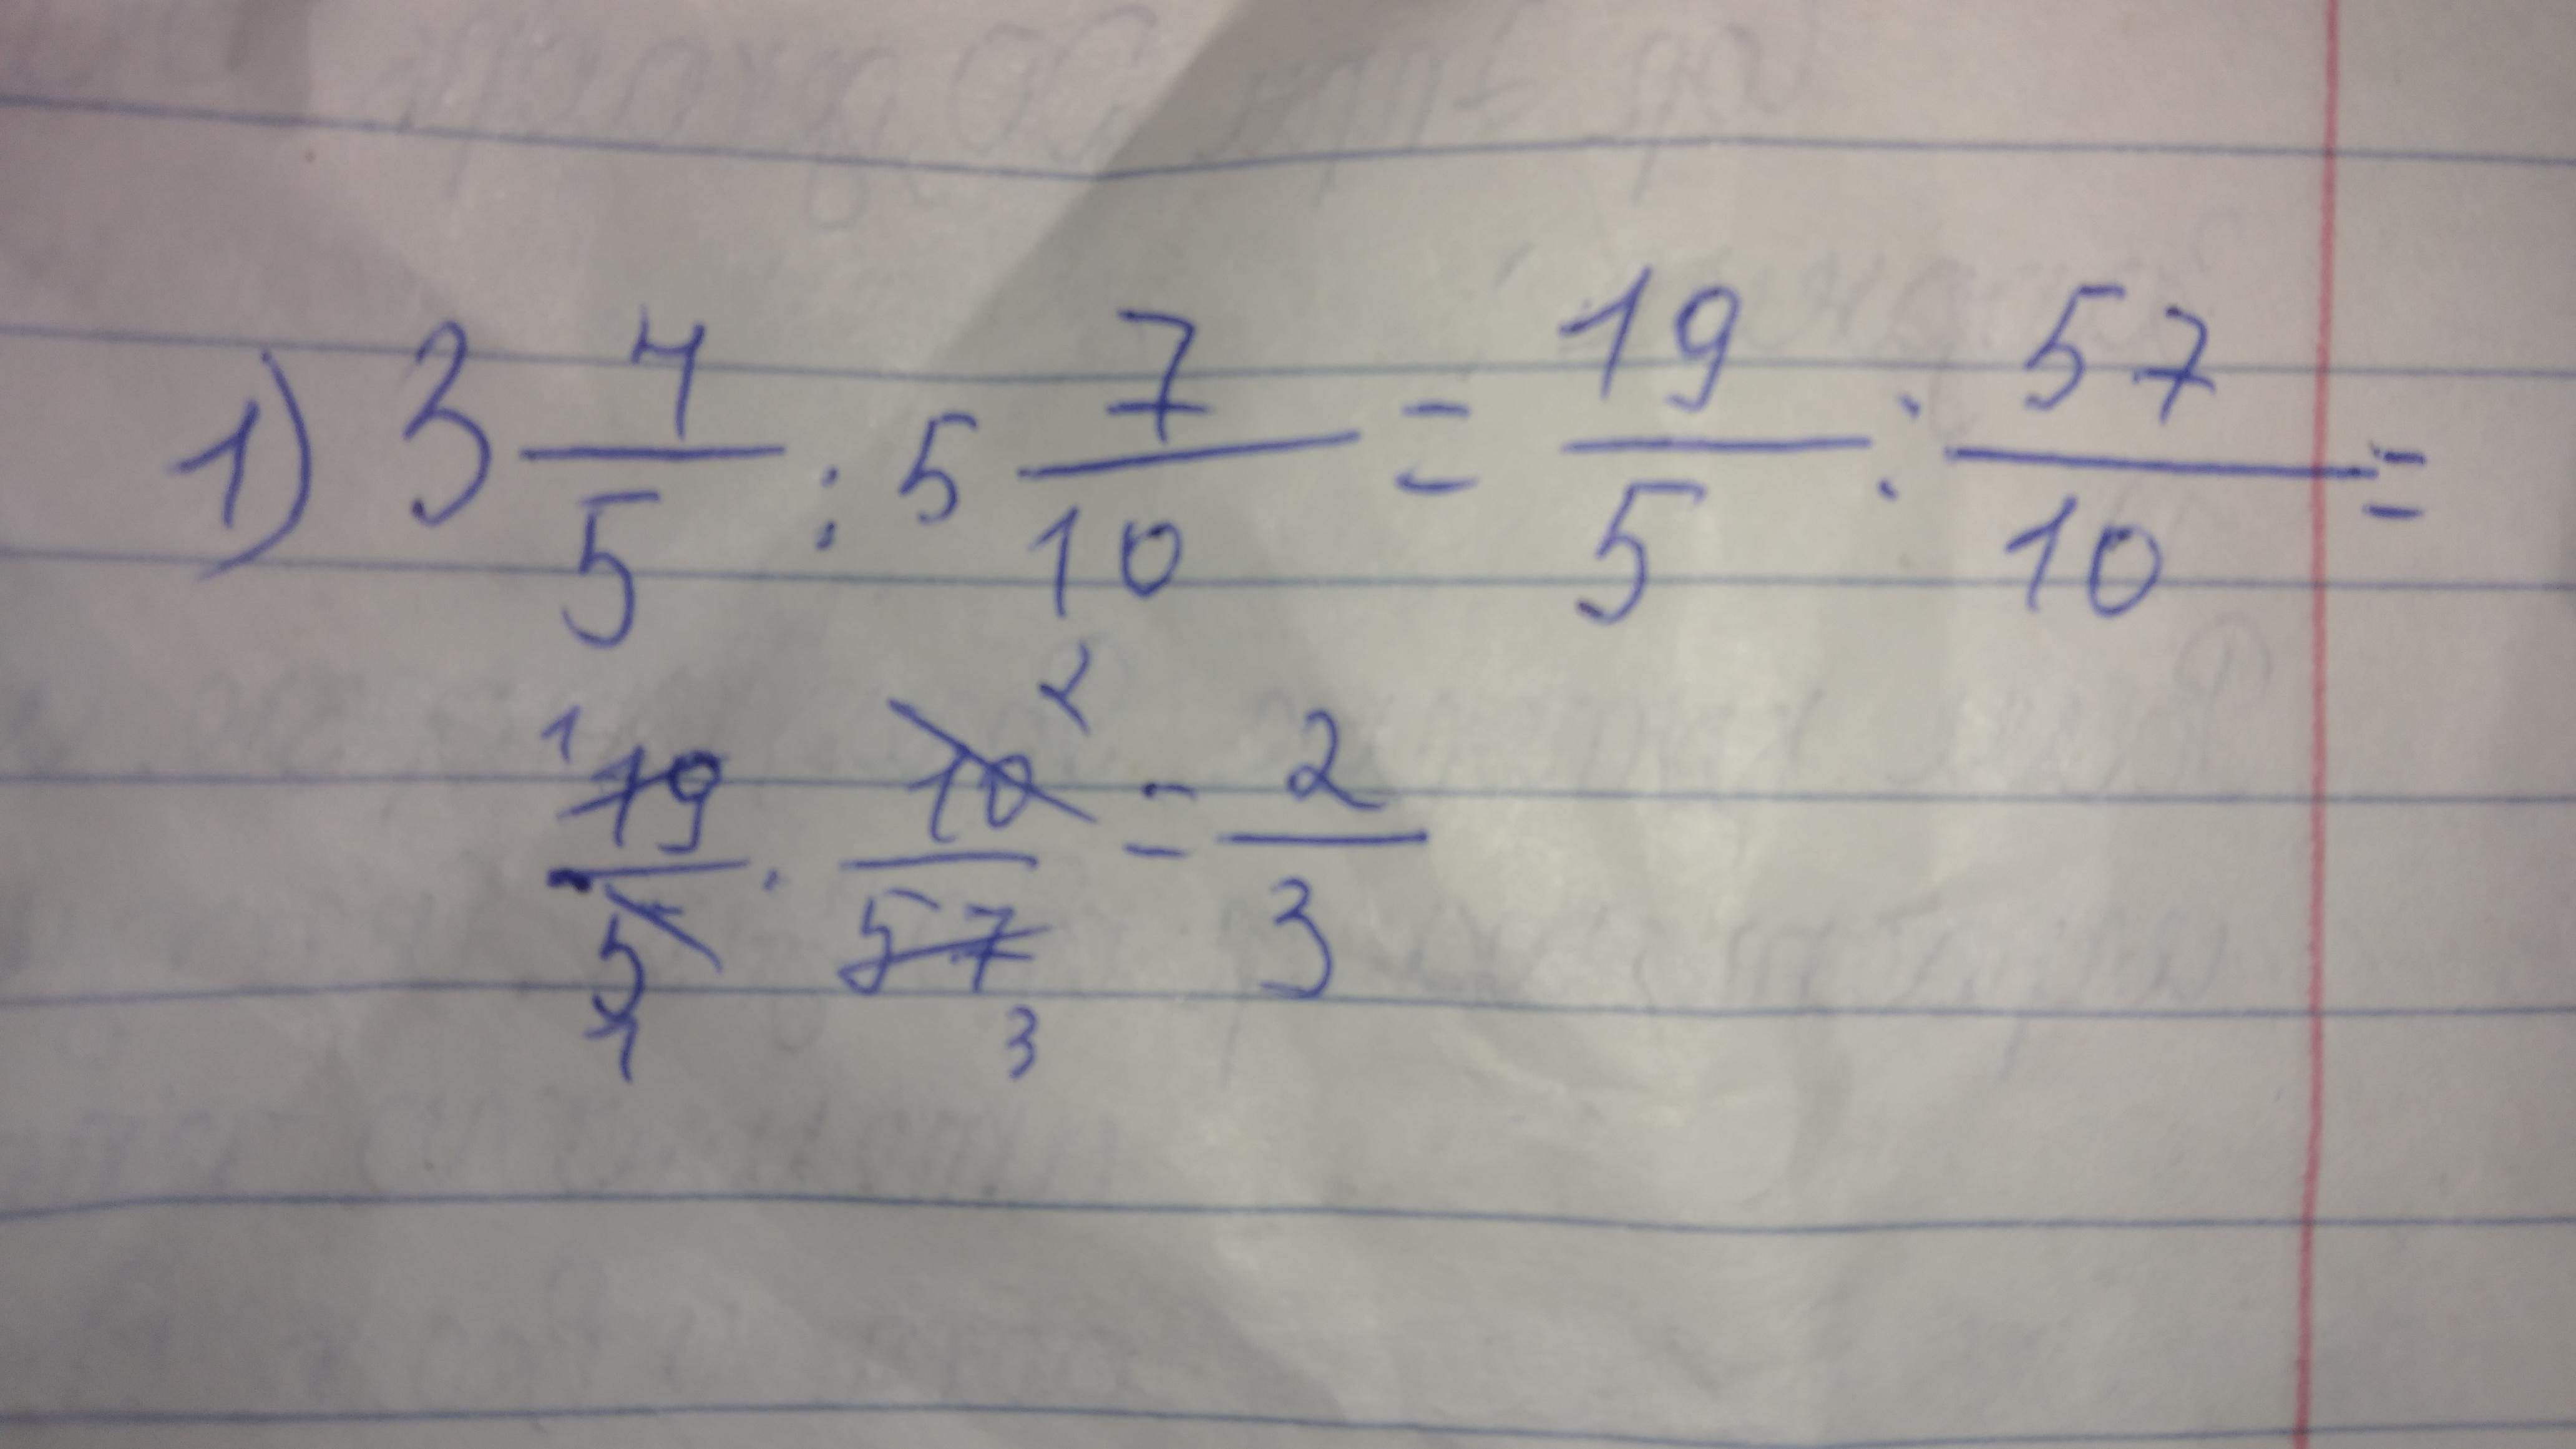 1) 3 4/5 : 5 7/10 = 19/5 : 57/10 =
1 19/5 1 · 10 2/57 3 = 2/3